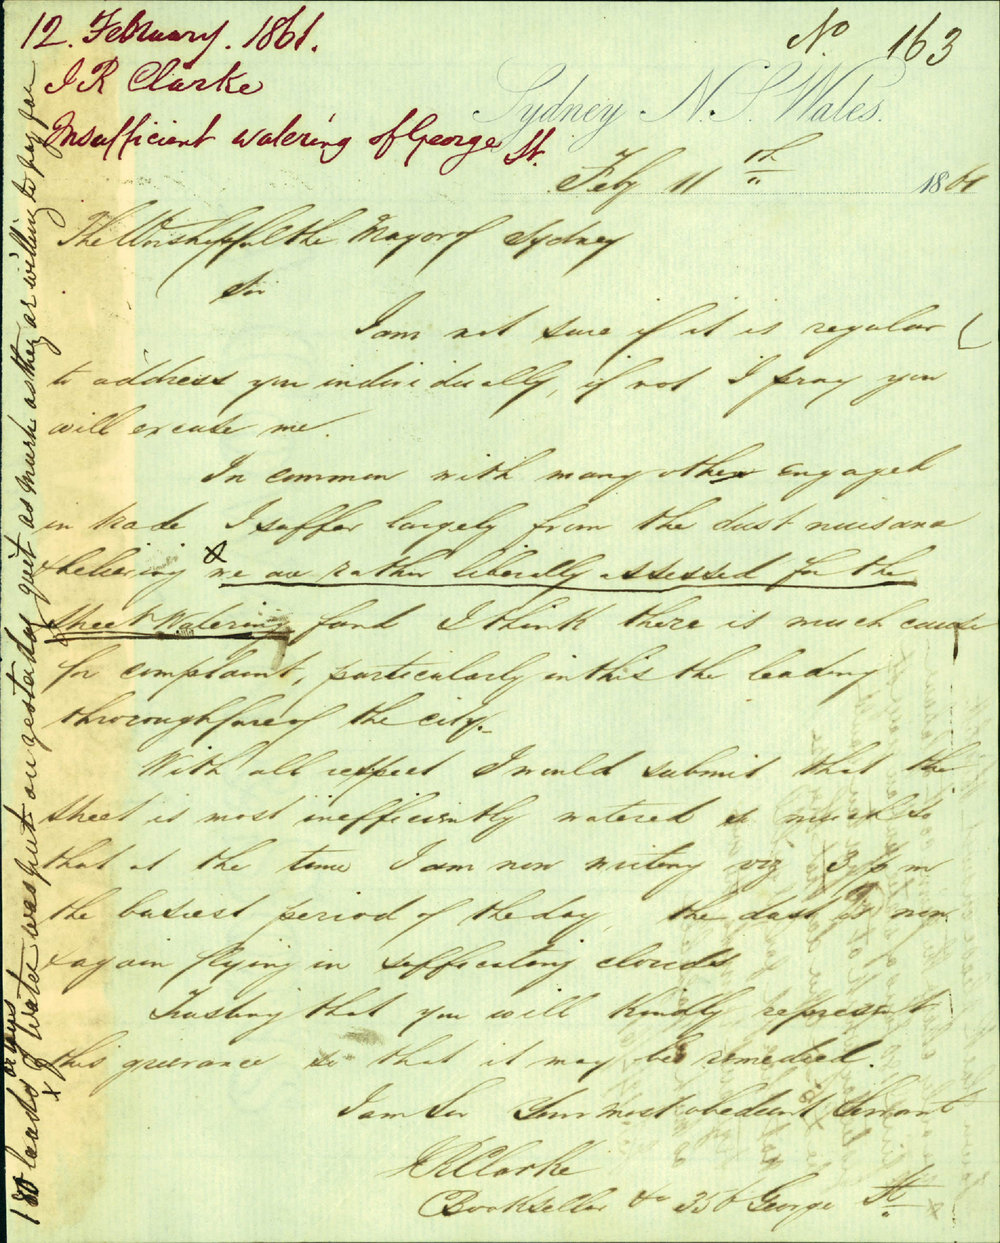 12. February. 1861.
J R Clarke
Insufficient watering of George St.
No 163
Sydney N. S. Wales.
Feby 11th 1861
The Worshipful the Mayor of Sydney
Sir
I am not sure if it is regular
to address you individually, if not I pray you
will excuse me.
In common with many others engaged
in trade I suffer largely from the dust nuisance
& believing x we are rather liberally assessed for the
Street Watering fund I think there is much cause
for complaint, particularly in this the leading
thoroughfare of the city.
With all respect I would submit that the
street is most inefficiently watered so much so
that at the time I am now writing viz 3 p m
the busiest period of the day, the dust is now
& again flying in suffocating clouds
Trusting that you will kindly represent
this grievance so that it may be remedied.
I am Sir Your most obedient Servant
J R Clarke
Bookseller &c 356 George St
x
180 loads of Water was put on yesterday quite as much as they are willing to pay for